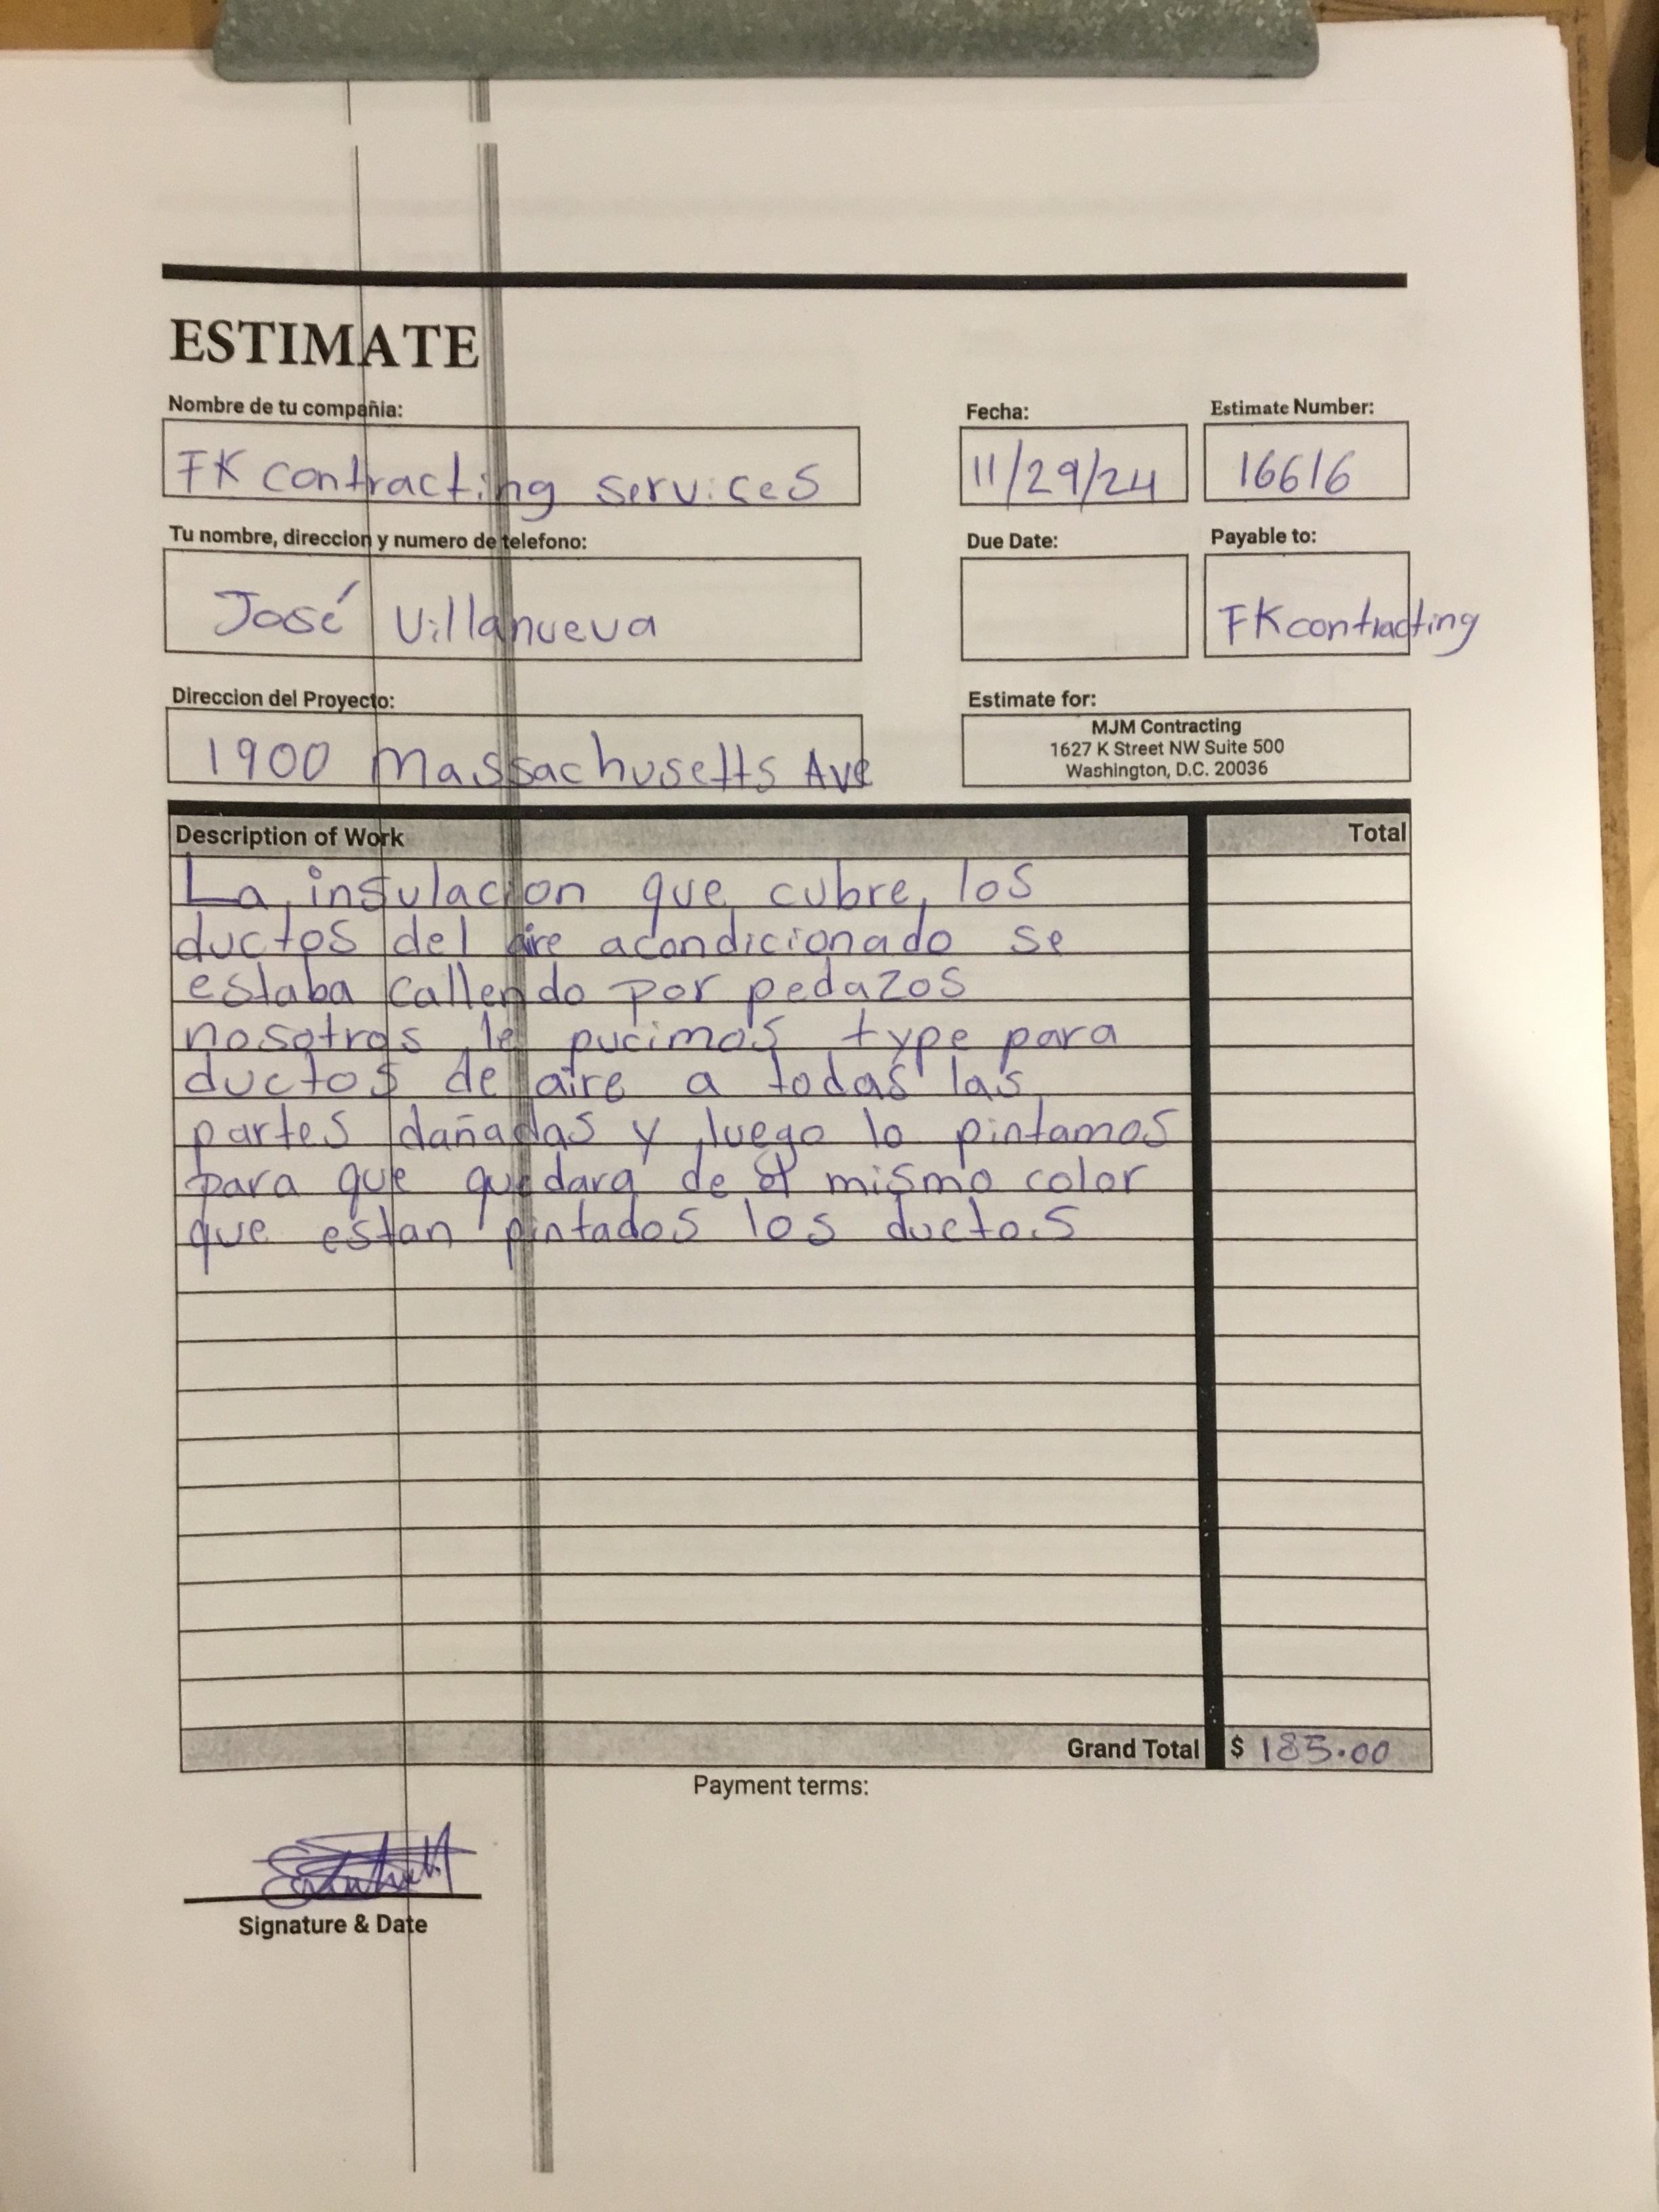 ESTIMATE
Nombre de tu compañia:
Fecha:
Estimate Number:
FK contracting services
11/29/24
16616
Tu nombre, direccion y numero de telefono:
Due Date:
Payable to:
José Villanueva
FK contracting
Direccion del Proyecto:
Estimate for:
1900 Massachusetts Ave
MJM Contracting
1627 K Street NW Suite 500
Washington, D.C. 20036
Description of Work
Total
La insulacion que cubre los
ductos del aire acondicionado se
estaba callendo por pedazos
nosotros le pucimos type para
ductos de aire a todas las
partes dañadas y luego lo pintamos
para que quedara de el mismo color
que estan pintados los ductos
Grand Total $ 185.00
Payment terms:
Signature & Date